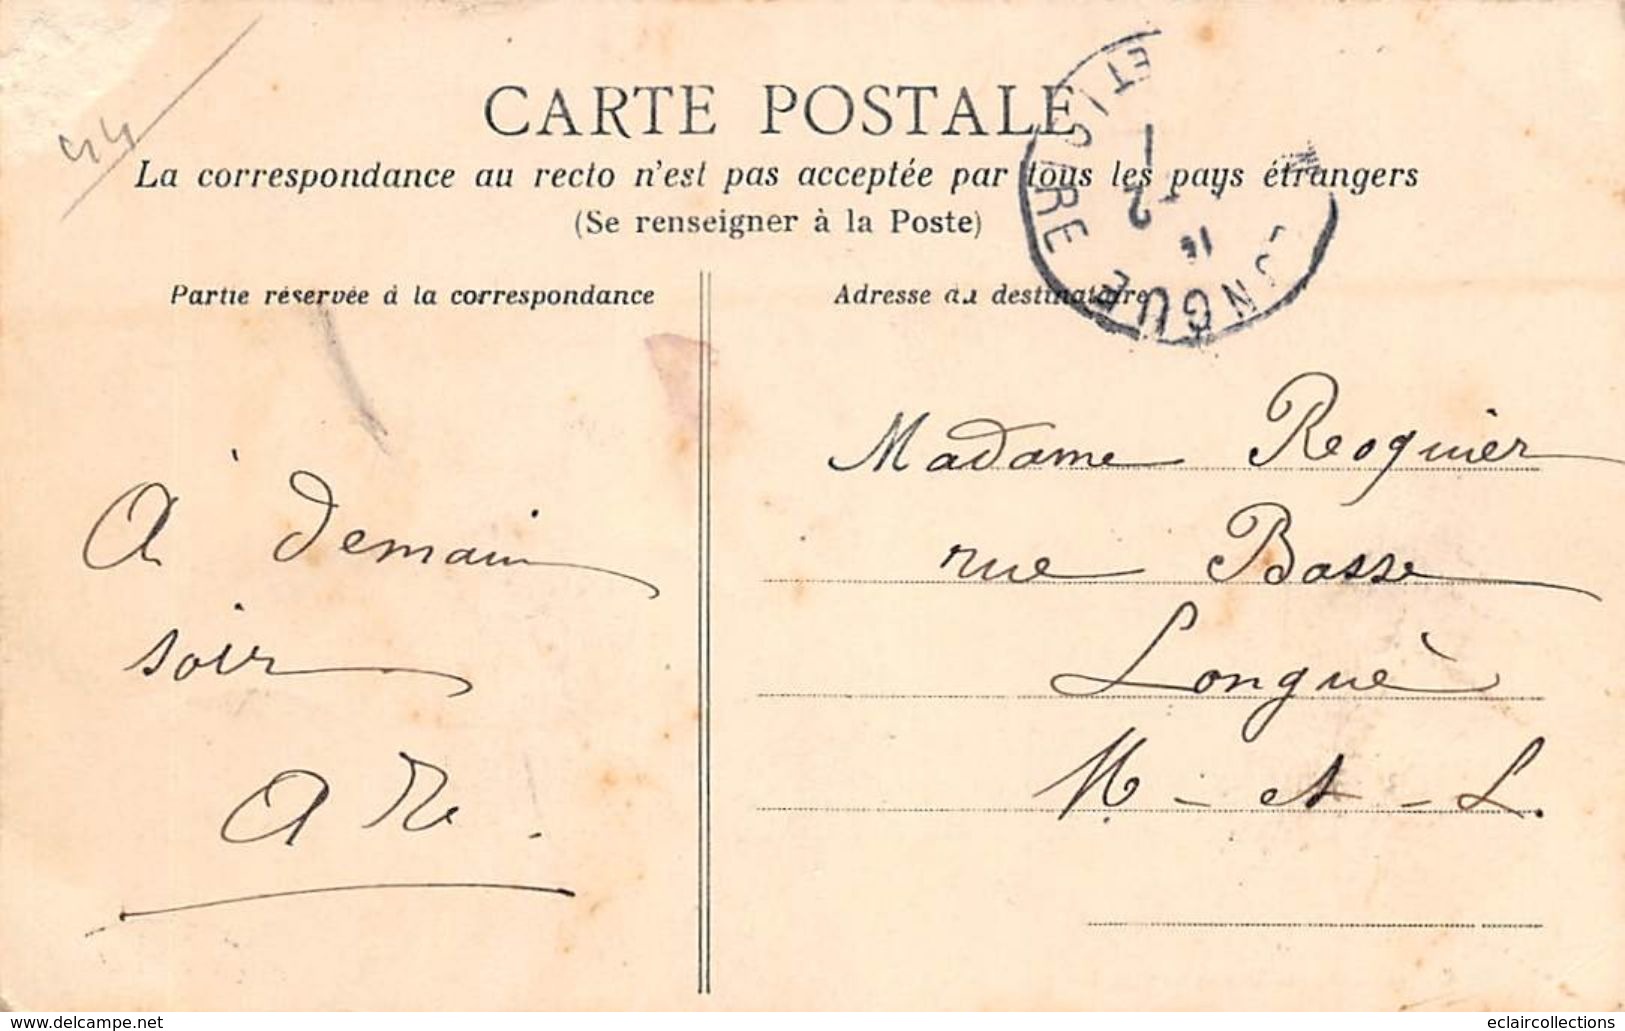 44
CARTE POSTALE
La correspondance au recto n'est pas acceptée par tous les pays étrangers
(Se renseigner à la Poste)
Partie réservée à la correspondance
Adresse du destinataire
LONGUE
2
16
À demain
soir
A R.
Madame Reoquier
rue Basse
Longué
M.-et-L.
www.delcampe.net
eclaircollections